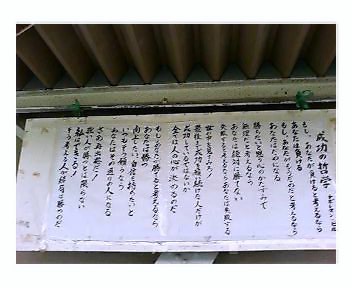 成功の哲学
ナポレオン・ヒル
もし、あなたが負けると考えるなら
あなたは負ける
もし、あなたがもうだめだと考えるなら
あなたはだめになる
勝ちたいと思う心のかたすみで
無理だと考えるなら
あなたは絶対に勝てない
失敗すると考えるならあなたは失敗する
世の中を見てみろ
最後まで成功を願い続けた人だけが
成功しているではないか
全ては人の心が決めるのだ
もし、あなたが勝てると考えるなら
あなたは勝つ
向上したい、自信を持ちたいと
あなたが願うなら
あなたはその通りの人になる
さあ再出発だ!
強い人が勝つとは限らない
私はできる!
そう考える人が結局は勝つのだ